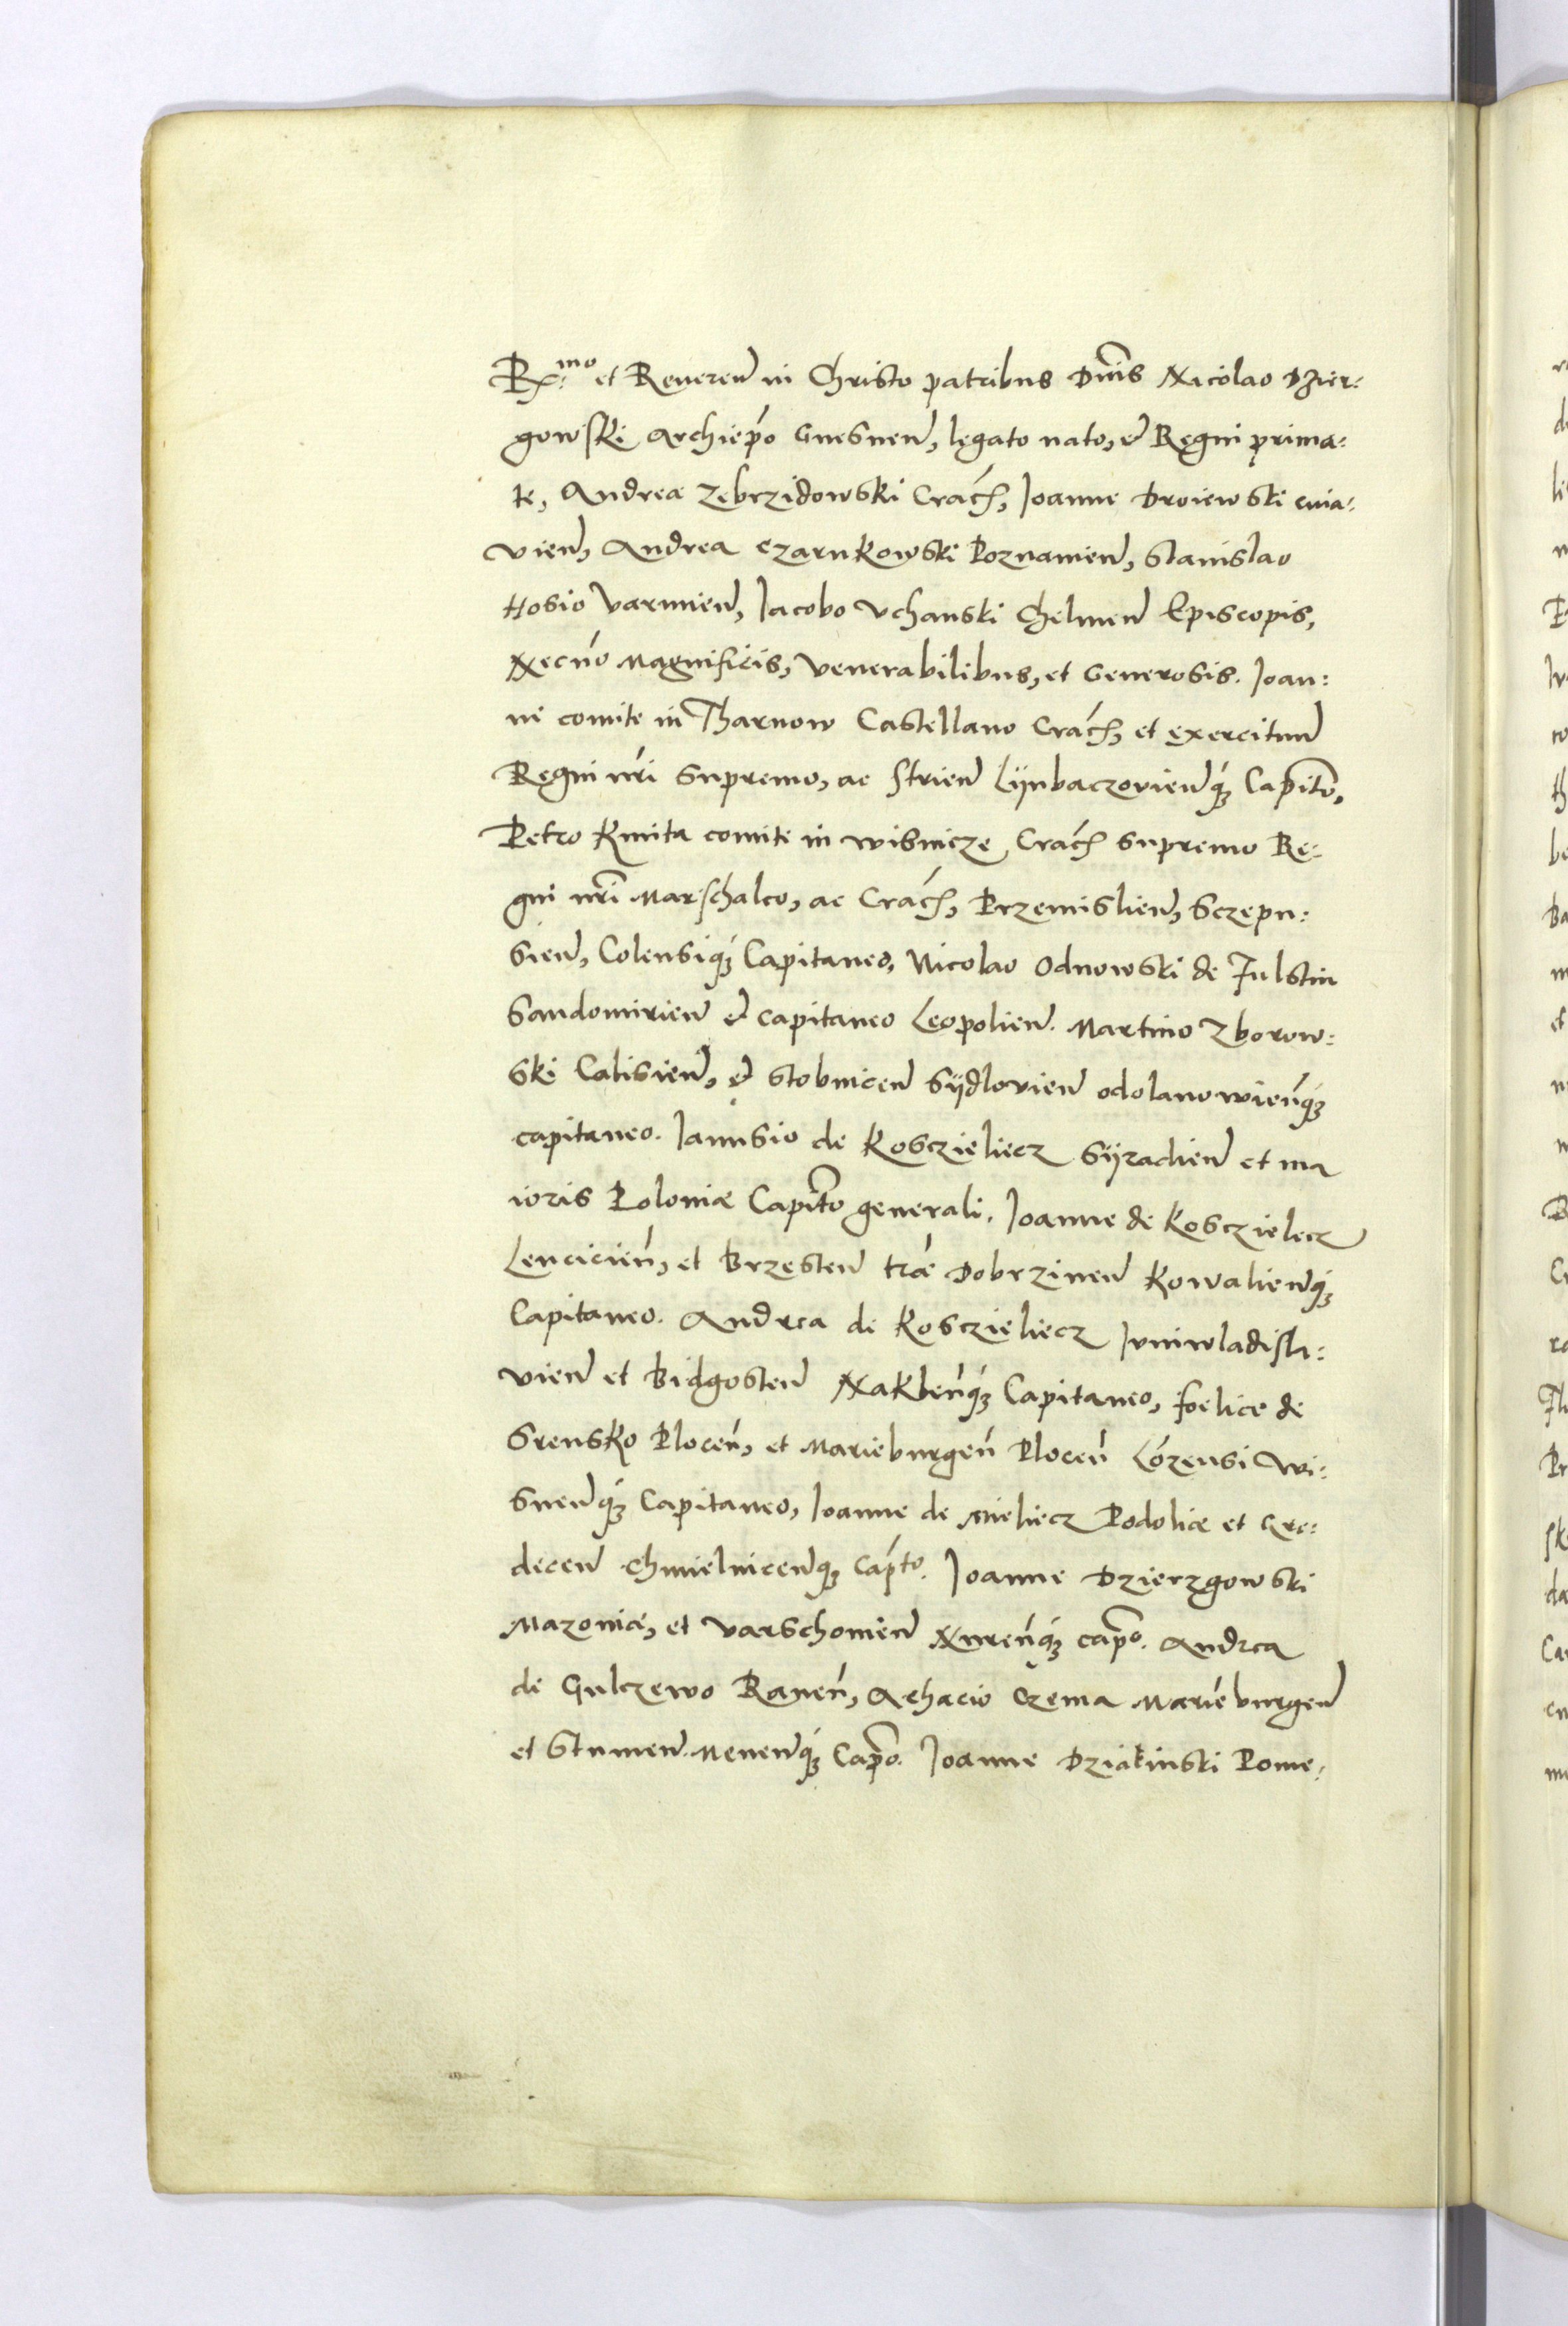 Rx:mo et Reueren in Christo patribus Dnis Nicolao Dzier:
gowski Archiepo Gnesnen, legato nato, et Regni prima:
te, Andrea Zebrzidowski Crach, Joanne Droiewski cuia:
vien, Andrea Czarnkowski Poznanien, Stanislao
Hosio Varmien, Jacobo Vchanski Chelmen Episcopis,
Necno Magnificis, Venerabilibus, et Generosis. Joan:
ne comite in Tharnow Castellano Crach, et exercituu
Regni nri Supremo, ac Strien Lÿubaczovienq3 Capito,
Petro Kmita comite in Wisnicze Crach supremo Re:
gni nri Marschalco, ac Crach, Przemislien, Sczepu:
sien, Colensiq3 Capitaneo, Nicolao Odnowski de Fulstin
Sandomirien et capitaneo Leopolien. Martino Zborow:
ski Calisien, et Stobnicen Sÿdlovien odolanowienq3
capitaneo. Janusio de Kosczieliecz Sÿradien et ma
ioris Poloniæ Capito generali, Joanne de Kosczielecz
Lencicien, et Brzesten træ Dobrzinen Kowalienq3
Capitaneo. Andrea de Kosczieliecz Juniwladisla:
vien et Bidgosten Naklenq3 Capitaneo, foelice de
Srensko Plocen, et Marieburgen Plocen Lozensi Wi:
snenq3 Capitaneo, Joanne de Mieliecz Podoliæ et Gre:
decen Chmielnicenq3 Capto. Joanne Dzierzgowski
Mazoniæ, et Varschonien Nurenq3 capo. Andrea
de Gulczewo Raven, Achacio Czema Marieburgen
et Stumen. Mevenq3 Capo. Joanne Dzialinski Pome: